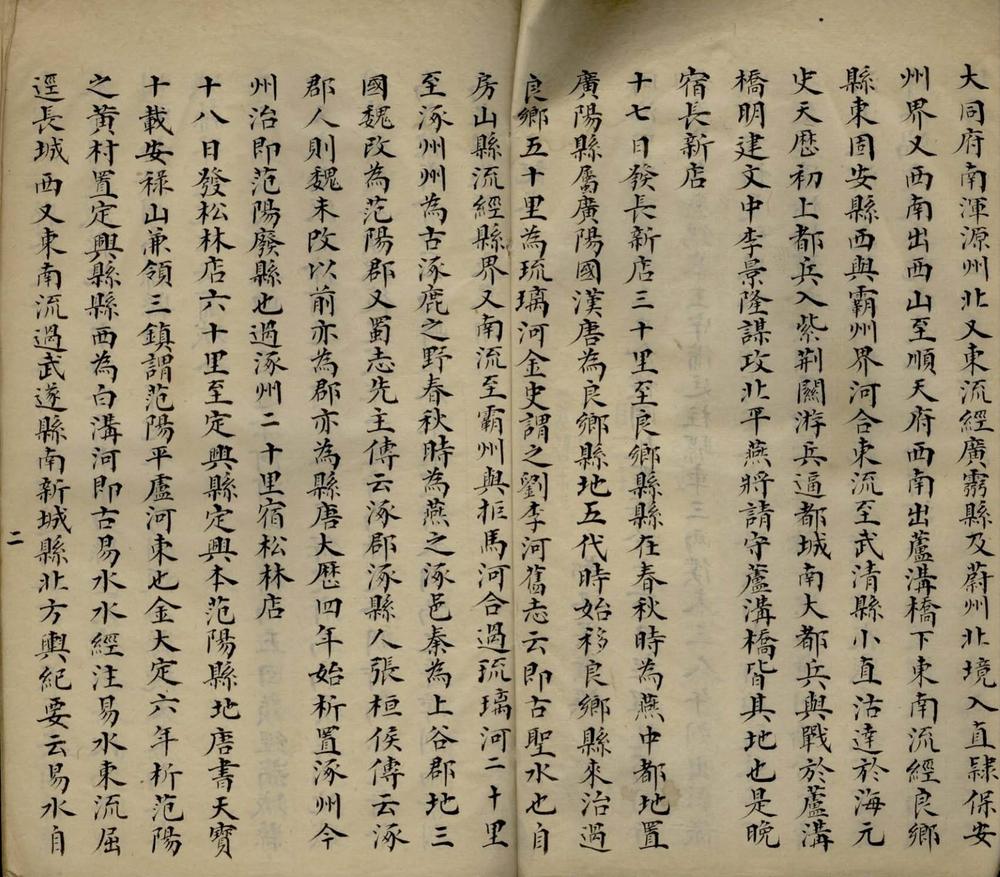 大同府南渾源州北又東流經廣靈縣及蔚州北境入直隸保安
州界又西南出西山至順天府西南出蘆溝橋下東南流經良鄉
縣東固安縣西與霸州界河合東流至武清縣小直沽達於海元
史天歷初上都兵入紫荆關游兵逼都城南大都兵與戰於蘆溝
橋明建文中李景隆謀攻北平燕將請守蘆溝橋皆其地也是晚
宿長新店
十七日發長新店三十里至良鄉縣縣在春秋時為燕中都地置
廣陽縣屬廣陽國漢唐為良鄉縣地五代時始移良鄉縣來治過
良鄉五十里為琉璃河金史謂之劉李河舊志云即古聖水也自
房山縣流經縣界又南流至霸州與拒馬河合過琉璃河二十里
至涿州州為古涿鹿之野春秋時為燕之涿邑秦為上谷郡地三
國魏改為范陽郡又蜀志先主傳云涿郡涿縣人張桓侯傳云涿
郡人則魏未改以前亦為郡亦為縣唐大歷四年始析置涿州今
州治即范陽廢縣也過涿州二十里宿松林店
十八日發松林店六十里至定興縣定興本范陽縣地唐書天寶
十載安祿山兼領三鎮謂范陽平盧河東也金大定六年析范陽
之黃村置定興縣縣西為白溝河即古易水水經注易水東流屆
逕長城西又東南流過武遂縣南新城縣北方輿紀要云易水自
二